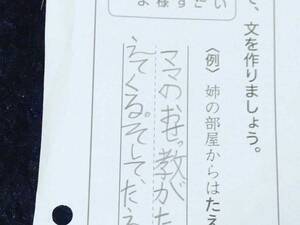 て、文を作りましょう。
〈例〉姉の部屋からはたえ
ママのおせ。教がた
えてくる。そして、たえ